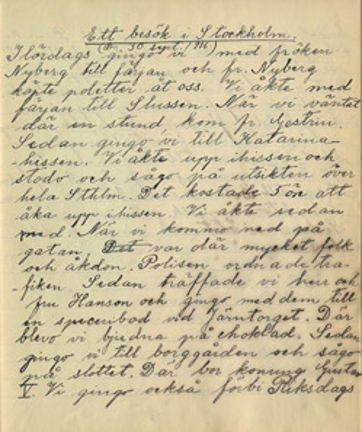 Ett besök i Stockholm.
(d. 30 sept. 1916)
I lördags gingo vi med fröken
Nyberg till färjan och fr. Nyberg
köpte poletter åt oss. Vi åkte med
färjan till Slussen. När vi väntat
där en stund kom fr. Gestrin.
Sedan gingo vi till Katarina-
hissen. Vi åkte upp i hissen och
stodo och sågo på utsikten över
hela Sthlm. Det kostade 5 öre att
åka upp i hissen. Vi åkte sedan
ned. När vi kommo ned på
gatan. Det var där mycket folk
och åkdon. Polisen ordnade tra-
fiken. Sedan träffade vi herr och
fru Hanson och gingo med dem till
en speceribod vid Järntorget. Där
blevo vi bjudna på choklad. Sedan
gingo vi till borggården och sågo
på slottet. Där bor konung Gustav
V. Vi gingo också förbi Riksdags